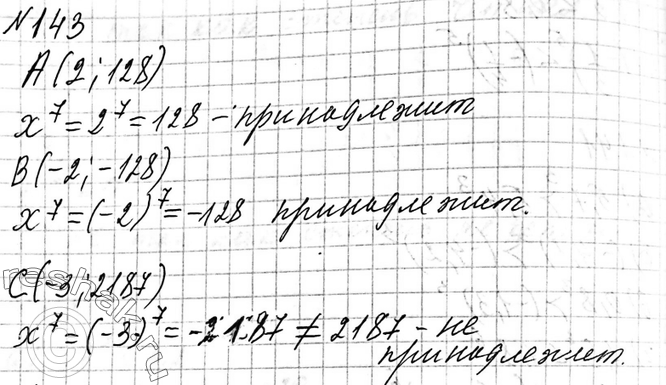 №143
A(2; 128)
x⁷ = 2⁷ = 128 - принадлежит
B(-2; -128)
x⁷ = (-2)⁷ = -128 принадлежит.
C(-3; 2187)
x⁷ = (-3)⁷ = -2187 ≠ 2187 - не
принадлежит.
© reshak.ru